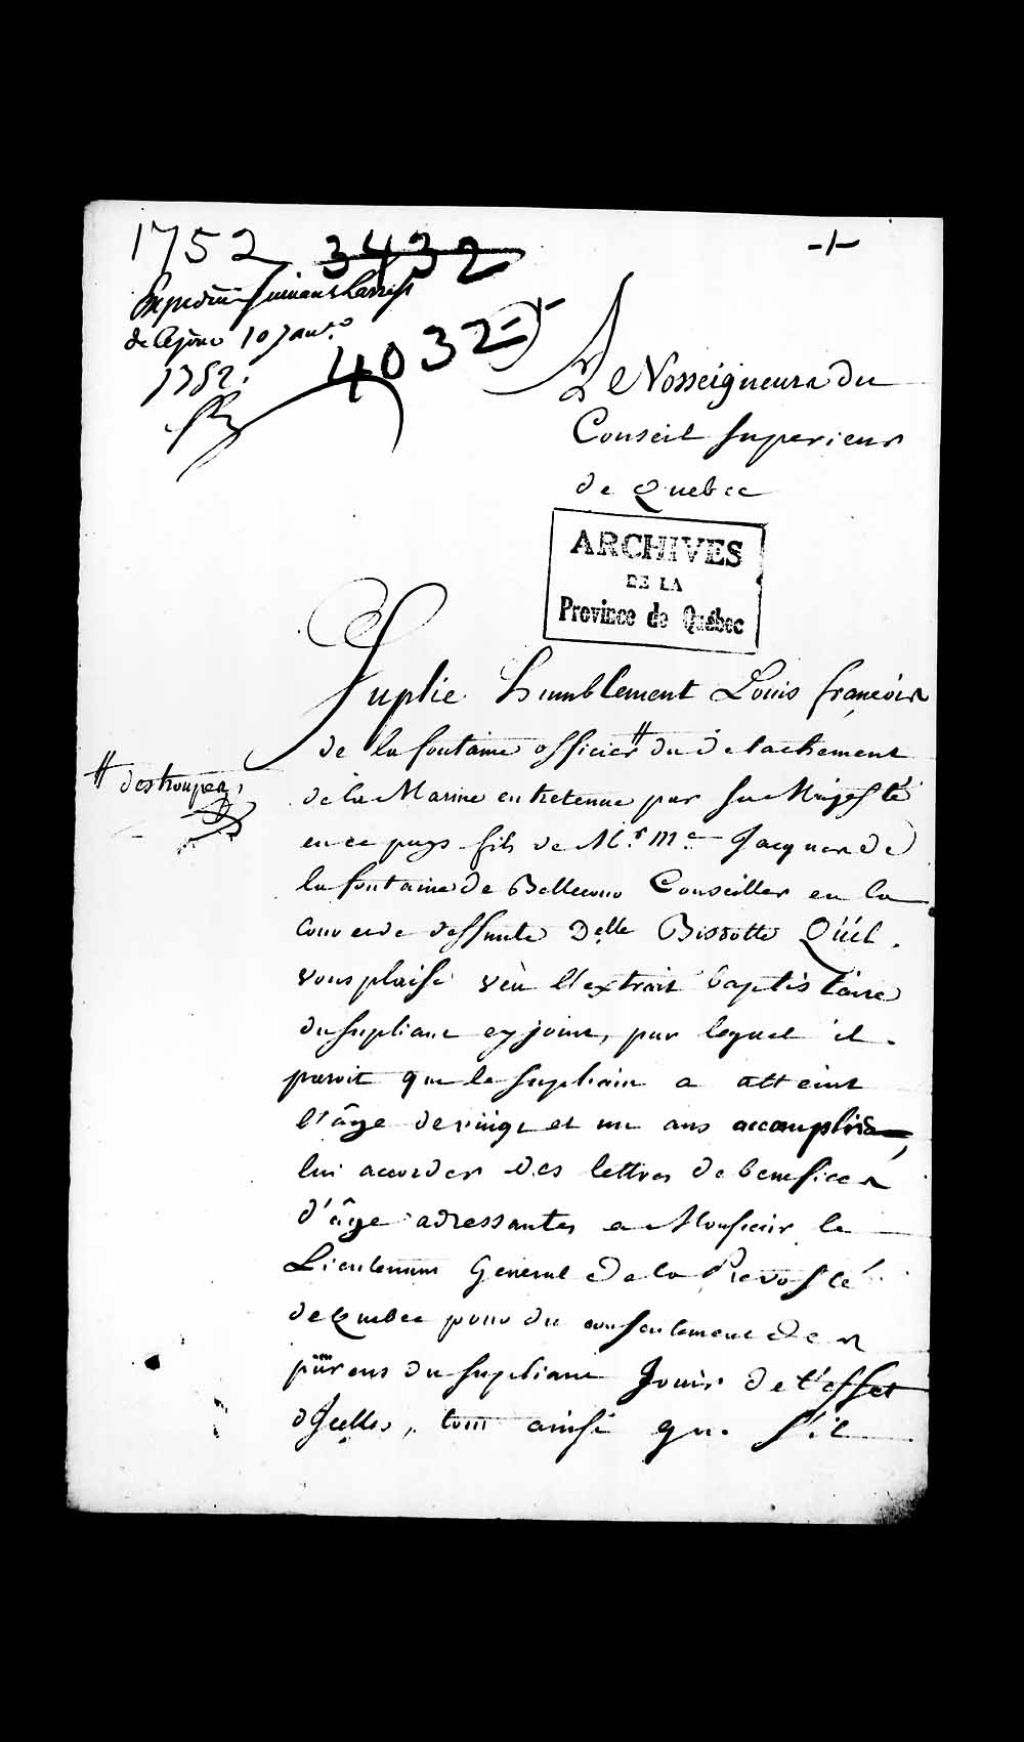 1752 3432
-1-
Expedié suivant Larrest
de ce jour 10 Janv.o
1752.
4032
A Nosseigneurs du
Conseil Superieur
de Quebec
ARCHIVES
DE LA
Province de Québec
Suplie humblement Louis françois
de lafontaine officier # du detachement
# des troupes
de la Marine entretenue par Sa Majesté
en ce pays fils de Mr. Me. Jacques de
lafontaine de Bellecour Conseiller en la
Cour et de deffunte Delle Bissotte Qu'il
vous plaise veu l'extrait baptistaire
du supliant cy joint, par lequel il
paroit que le supliant a atteint
l'âge de vingt et un ans accomplis,
lui accorder des lettres de benefice
d'âge adressantes a Monsieur le
Lieutenant General de la Prevosté
de Quebec pour du consentement des
parens du supliant Jouir de l'effet
d'Icelles, tout ainsi que s'il